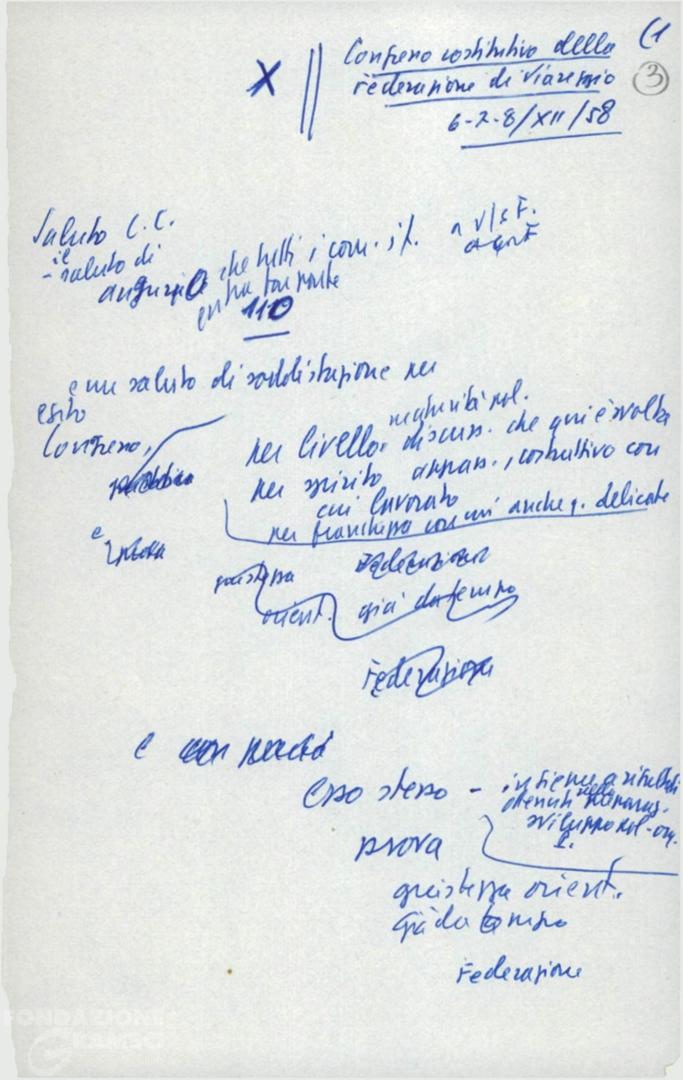 (1
X
Congresso costitutivo della
Federazione di Viareggio
3
6-7-8/XII/58
Saluto C.C.
- il saluto di
augurio che tutti i com. it.
a v/s F.
110
e un saluto di soddisfazione per
esito
Congresso,
maturità pol.
per livello discuss. che qui è svolta
per spirito appass., costruttivo con
cui lavorato
per franchezza con cui anche q. delicate
e
giustezza
Federazione
orient. già da tempo
Federazione
e
Esso stesso - insieme a risultati
ottenuti
sviluppo pol-org.
prova
giustezza orient.
già da tempo
Federazione
FONDAZIONE
GRAMSCI